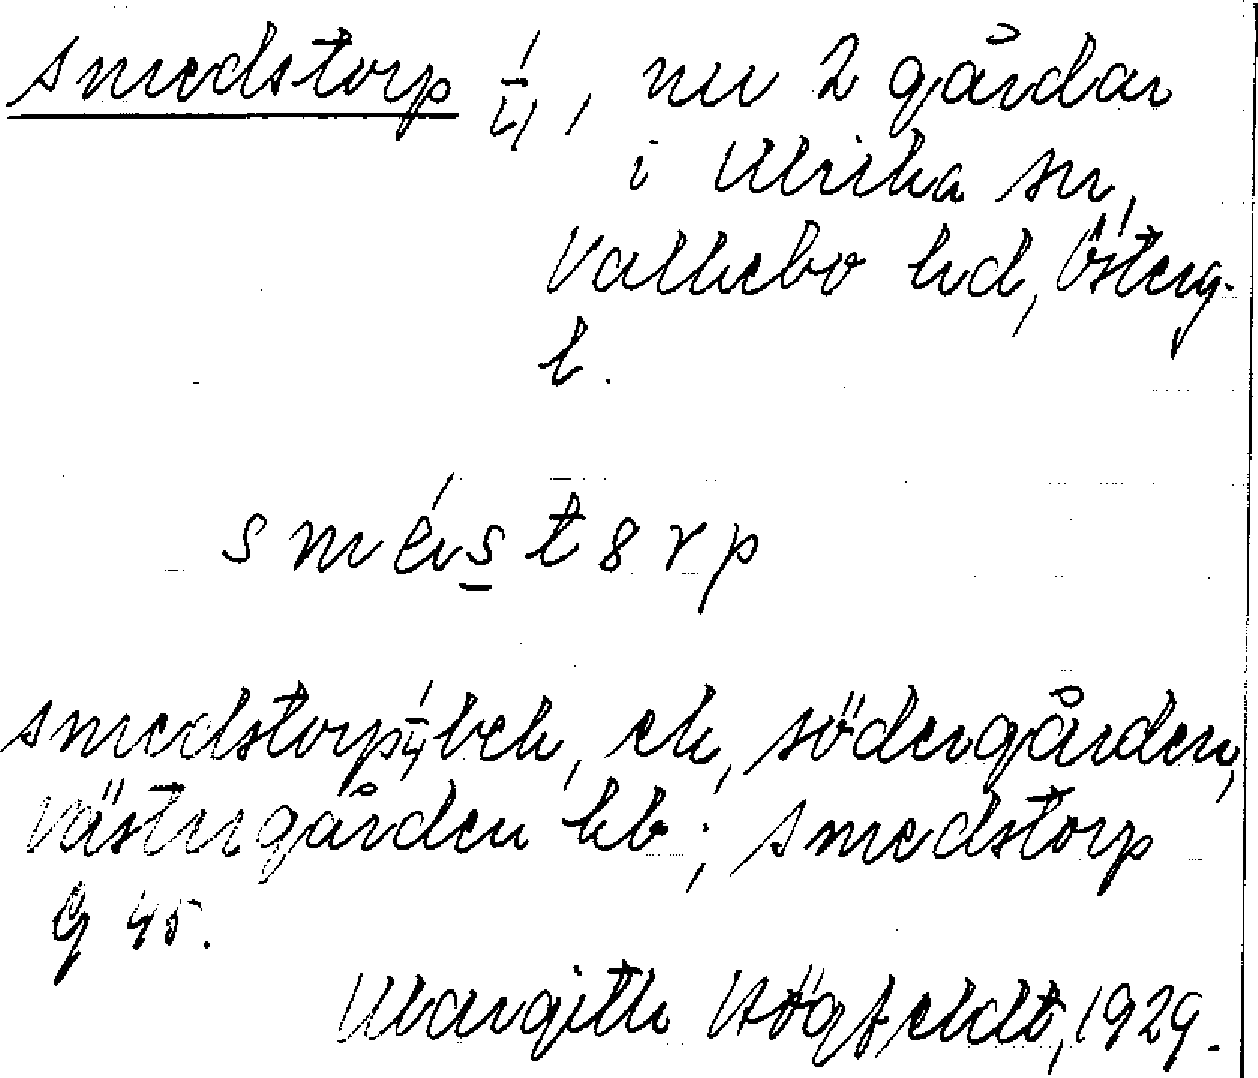 Smedstorp 1/4, nu 2 gårdar
i Ulrika sn,
Valkebo hd, Österg.
l.
smé̀stsrp
Smedstorp 1/4 bek, ek, Södergården,
Västergården hb; Smedstorp
G 45.
Margith Högfeldt, 1929.